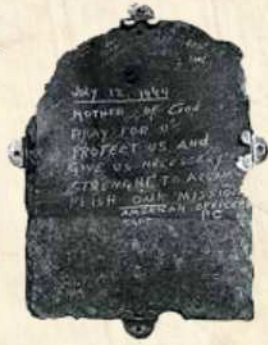 July 12, 1944
MOTHER, of God
PRAY FOR US
PROTECT US AND
GIVE US NECESSARY
STRENGHT TO ACCOM
PLISH OUR MISSION
AMERICAN OFFICER